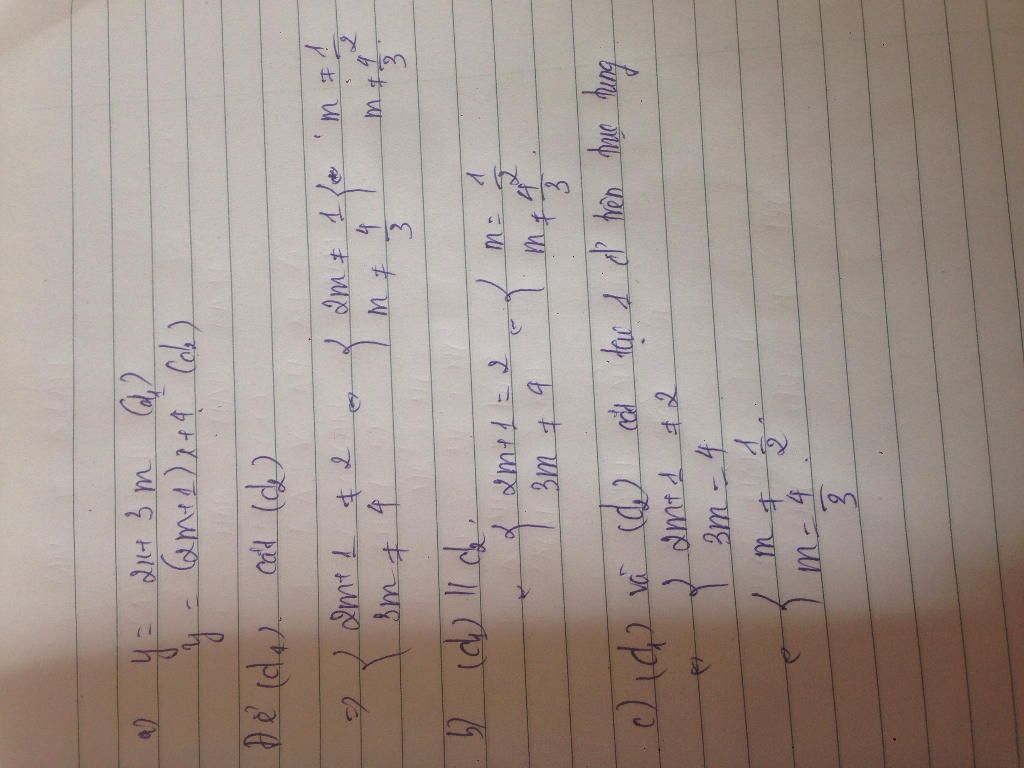 a) y = 2x + 3m (d1)
y = (2m+1)x + 4 (d2)
Để (d1) cắt (d2)
=> { 2m+1 ≠ 2 ⇔ { 2m ≠ 1 { ⇔ m ≠ 1/2
3m ≠ 4 m ≠ 4/3 m ≠ 4/3.
b) (d1) // d2.
⇔ { 2m+1 = 2 ⇔ { m = 1/2
3m ≠ 4 m ≠ 4/3.
c) (d1) và (d2) cắt tại 1 đ' trên trục tung
⇔ { 2m+1 ≠ 2
3m = 4
⇔ { m ≠ 1/2.
m = 4/3.